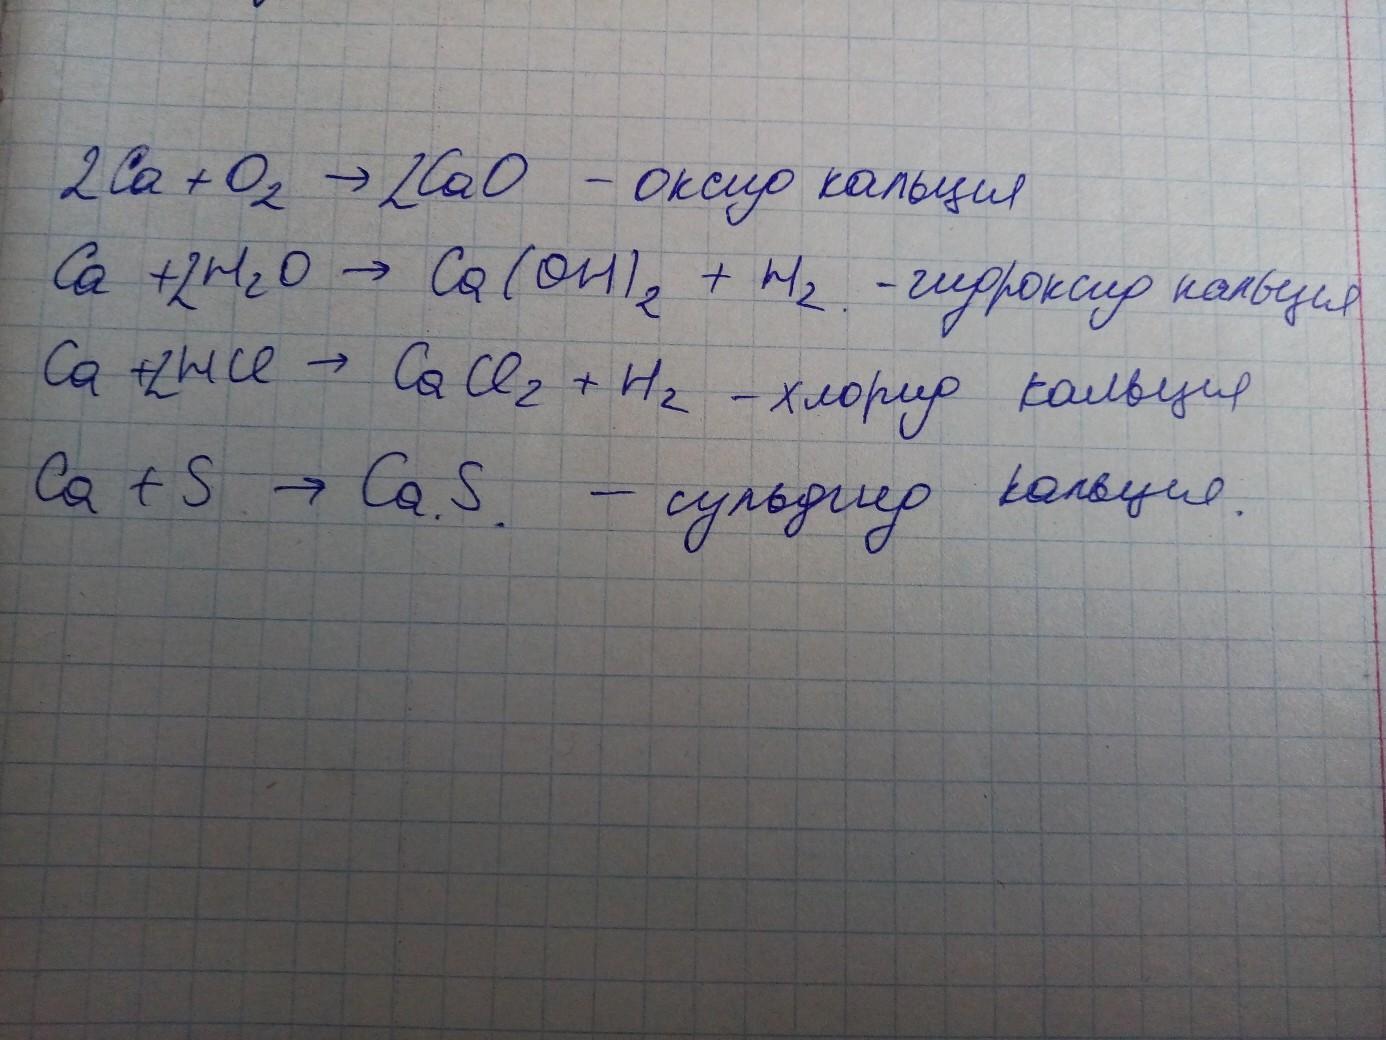 2Ca + O₂ → 2CaO - оксид кальция
Ca + 2H₂O → Ca(OH)₂ + H₂. - гидроксид кальция
Ca + 2HCl → CaCl₂ + H₂ - хлорид кальция
Ca + S → Ca.S. - сульфид кальция.